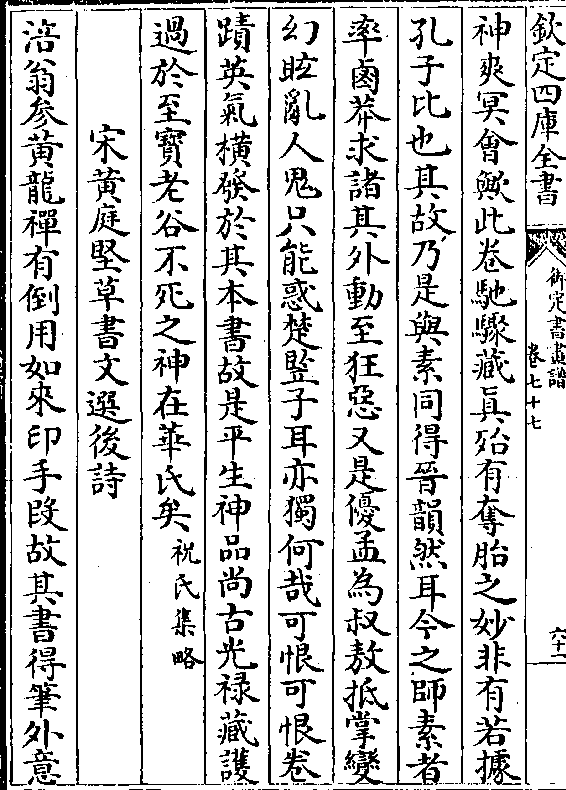 欽定四庫全書
御定書畫譜
卷七十七
六十一
神爽冥會歟此卷馳驟藏真殆有奪胎之妙非有若據
孔子比也其故乃是與素同得晉韻然耳今之師素者
率鹵莽求諸其外動至狂惡又是優孟為叔敖抵掌變
幻眩亂人鬼只能惑楚豎子耳亦獨何哉可恨可恨卷
蹟英氣橫發於其本書故是平生神品尚古光祿藏護
過於至寶老谷不死之神在華氏矣祝氏集略
宋黄庭堅草書文選後詩
涪翁參黄龍禪有倒用如來印手段故其書得筆外意